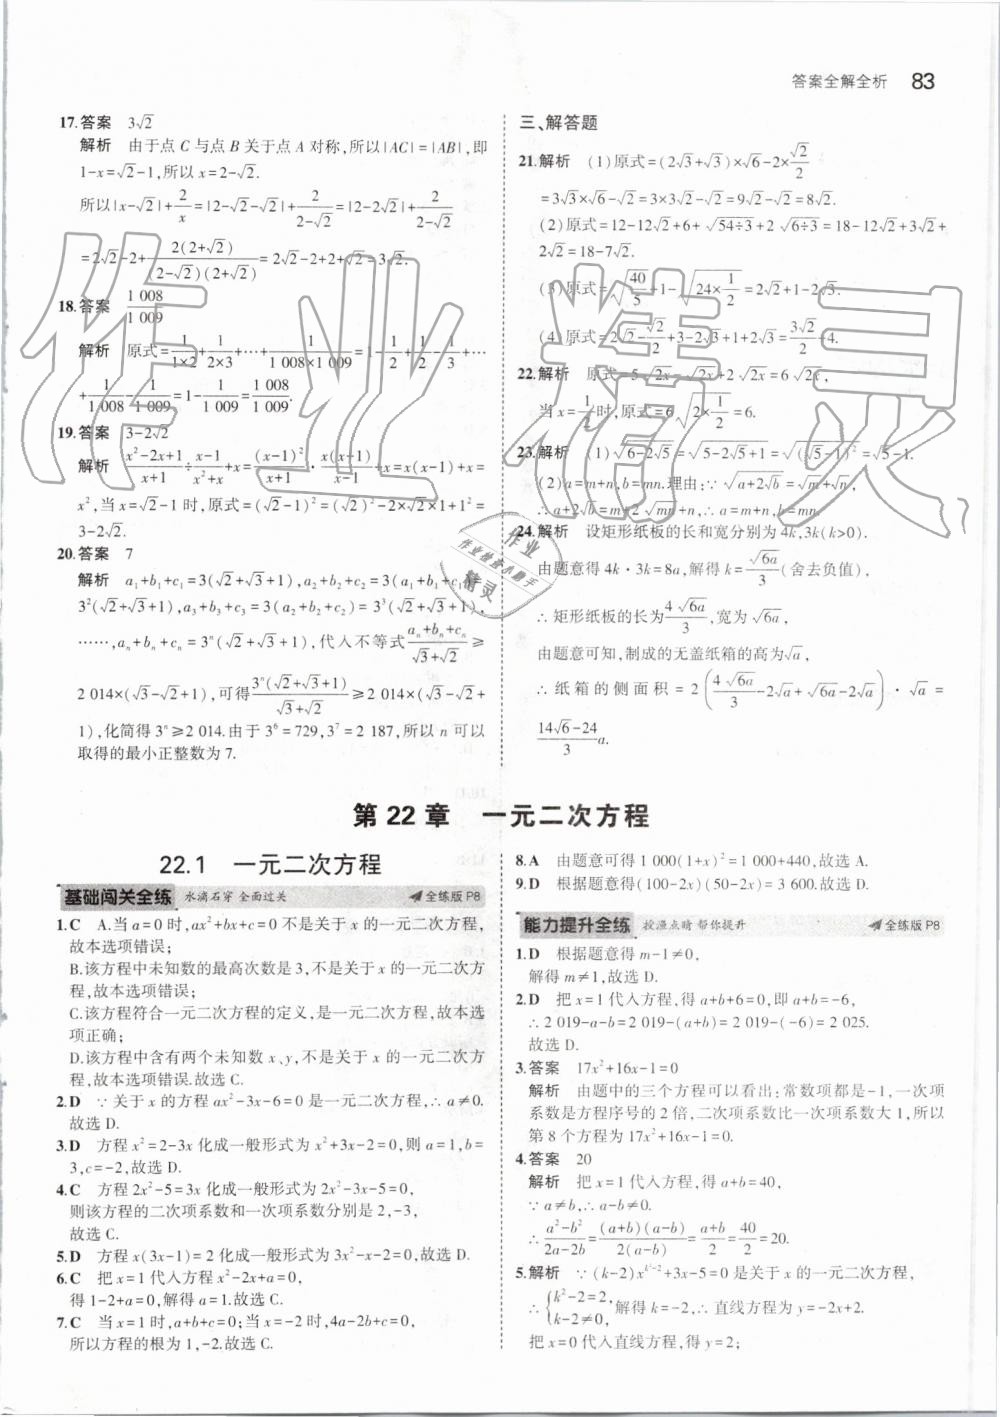 答案全解全析 83
17.答案 3√2
解析 由于点 C 与点 B 关于点 A 对称,所以|AC|=|AB|,即
1-x=√2-1,所以 x=2-√2.
所以|x-√2|+2/x=|2-√2-√2|+2/(2-√2)=|2-2√2|+2/(2-√2)
=2√2-2+2(2+√2)/((2-√2)(2+√2))=2√2-2+2+√2=3√2.
18.答案 1 008/1 009
解析 原式=1/(1×2)+1/(2×3)+…+1/(1 008×1 009)=1-1/2+1/2-1/3+…
+1/1 008-1/1 009=1-1/1 009=1 008/1 009.
19.答案 3-2√2
解析 (x²-2x+1)/(x+1)÷(x-1)/(x+1)+x=(x-1)²/(x+1)·x(x+1)/(x-1)+x=x(x-1)+x=
x²,当 x=√2-1 时,原式=(√2-1)²=(√2)²-2×√2×1+1²=
3-2√2.
20.答案 7
解析 a₁+b₁+c₁=3(√2+√3+1),a₂+b₂+c₂=3(a₁+b₁+c₁)=
3²(√2+√3+1),a₃+b₃+c₃=3(a₂+b₂+c₂)=3³(√2+√3+1),
……,aₙ+bₙ+cₙ=3ⁿ(√2+√3+1),代入不等式(aₙ+bₙ+cₙ)/(√3+√2)≥
2 014×(√3-√2+1),可得3ⁿ(√2+√3+1)/(√3+√2)≥2 014×(√3-√2+
1),化简得 3ⁿ≥2 014.由于 3⁶=729,3⁷=2 187,所以 n 可以
取得的最小正整数为 7.
三、解答题
21.解析 (1)原式=(2√3+√3)×√6-2×√2/2
=3√3×√6-√2=3×3√2-√2=9√2-√2=8√2.
(2)原式=12-12√2+6+√(54÷3)+2√(6÷3)=18-12√2+3√2+
2√2=18-7√2.
(3)原式=√(40/5)+1-√(24×1/2)=2√2+1-2√3.
(4)原式=2√2-√2/2+3-2√3+1+2√3=3√2/2+4.
22.解析 原式=5√2x-√2x+2√2x=6√2x,
当 x=1/2时,原式=6√(2×1/2)=6.
23.解析 (1)√(6-2√5)=√(5-2√5+1)=√((√5-1)²)=√5-1.
(2)a=m+n,b=mn.理由:∵√(a+2√b)=√m+√n,
∴a+2√b=m+2√mn+n,∴a=m+n,b=mn.
24.解析 设矩形纸板的长和宽分别为 4k,3k(k>0).
由题意得 4k·3k=8a,解得 k=√6a/3(舍去负值),
∴矩形纸板的长为4√6a/3,宽为√6a,
由题意可知,制成的无盖纸箱的高为√a,
∴纸箱的侧面积=2(4√6a/3-2√a+√6a-2√a)·√a=
(14√6-24)/3 a.
第 22 章 一元二次方程
22.1 一元二次方程
基础闯关全练 水滴石穿 全面过关 全练版 P8
1.C A.当 a=0 时,ax²+bx+c=0 不是关于 x 的一元二次方程,
故本选项错误;
B.该方程中未知数的最高次数是 3,不是关于 x 的一元二次方
程,故本选项错误;
C.该方程符合一元二次方程的定义,是一元二次方程,故本选
项正确;
D.该方程中含有两个未知数 x、y,不是关于 x 的一元二次方
程,故本选项错误.故选 C.
2.D ∵关于 x 的方程 ax²-3x-6=0 是一元二次方程,∴a≠0.
故选 D.
3.D 方程 x²=2-3x 化成一般形式为 x²+3x-2=0,则 a=1,b=
3,c=-2,故选 D.
4.C 方程 2x²-5=3x 化成一般形式为 2x²-3x-5=0,
则该方程的二次项系数和一次项系数分别是 2,-3,
故选 C.
5.D 方程 x(3x-1)=2 化成一般形式为 3x²-x-2=0,故选 D.
6.C 把 x=1 代入方程 x²-2x+a=0,
得 1-2+a=0,解得 a=1.故选 C.
7.C 当 x=1 时,a+b+c=0;当 x=-2 时,4a-2b+c=0,
所以方程的根为 1,-2.故选 C.
8.A 由题意可得 1 000(1+x)²=1 000+440,故选 A.
9.D 根据题意得(100-2x)(50-2x)=3 600.故选 D.
能力提升全练 拨溪点睛 帮你提升 全练版 P8
1.D 根据题意得 m-1≠0,
解得 m≠1,故选 D.
2.D 把 x=1 代入方程,得 a+b+6=0,即 a+b=-6,
∴2 019-a-b=2 019-(a+b)=2 019-(-6)=2 025.
故选 D.
3.答案 17x²+16x-1=0
解析 由题中的三个方程可以看出:常数项都是-1,一次项
系数是方程序号的 2 倍,二次项系数比一次项系数大 1,所以
第 8 个方程为 17x²+16x-1=0.
4.答案 20
解析 把 x=1 代入方程,得 a+b=40,
∵a≠b,∴a-b≠0.
∴(a²-b²)/(2a-2b)=(a+b)(a-b)/(2(a-b))=(a+b)/2=40/2=20.
5.解析 ∵(k-2)x^(k²-2)+3x-5=0 是关于 x 的一元二次方程,
∴{k²-2=2, k-2≠0,解得 k=-2,∴直线方程为 y=-2x+2.
把 x=0 代入直线方程,得 y=2;
作业精灵
作业精灵